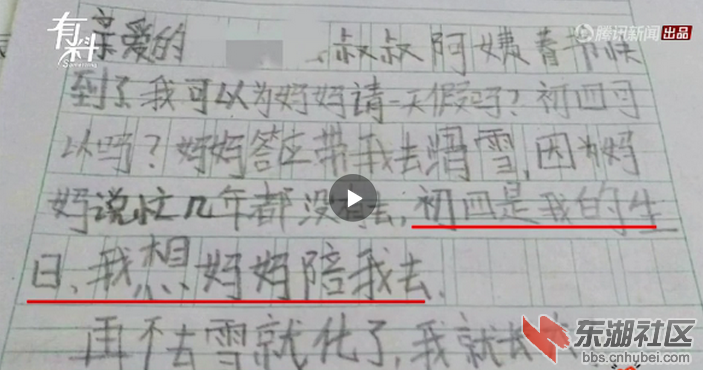 有料
Something
腾讯新闻 出品
亲爱的 叔叔阿姨春节快
到了我可以为妈妈请一天假吗?初四可
以吗?妈妈答应带我去滑雪,因为妈
妈说忙几年都没有去,初四是我的生
日、我想妈妈陪我去.
再不去雪就化了,我就去
东湖社区
bbs.cnhubei.com